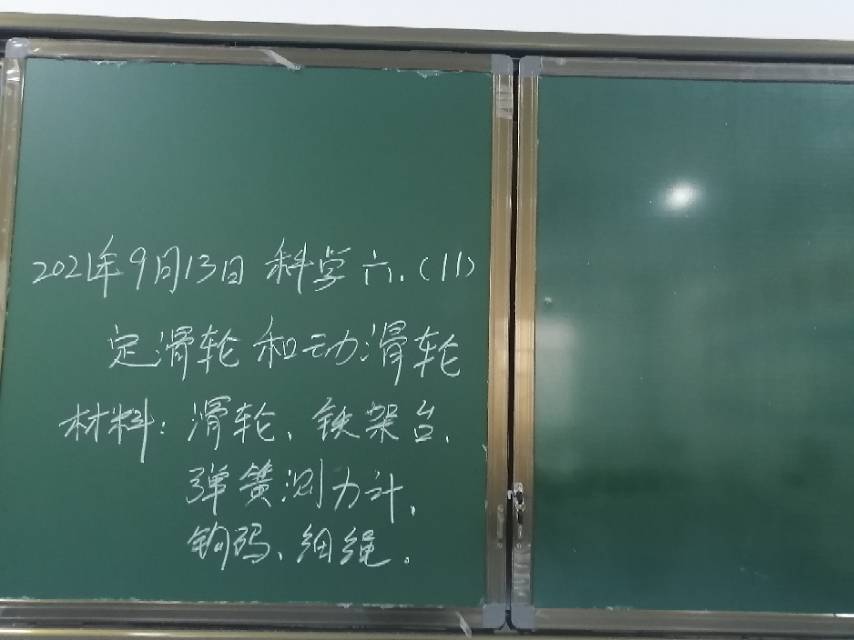 2021年9月13日 科学 六.(11)
定滑轮和动滑轮
材料：滑轮、铁架台、
弹簧测力计、
钩码、细绳。